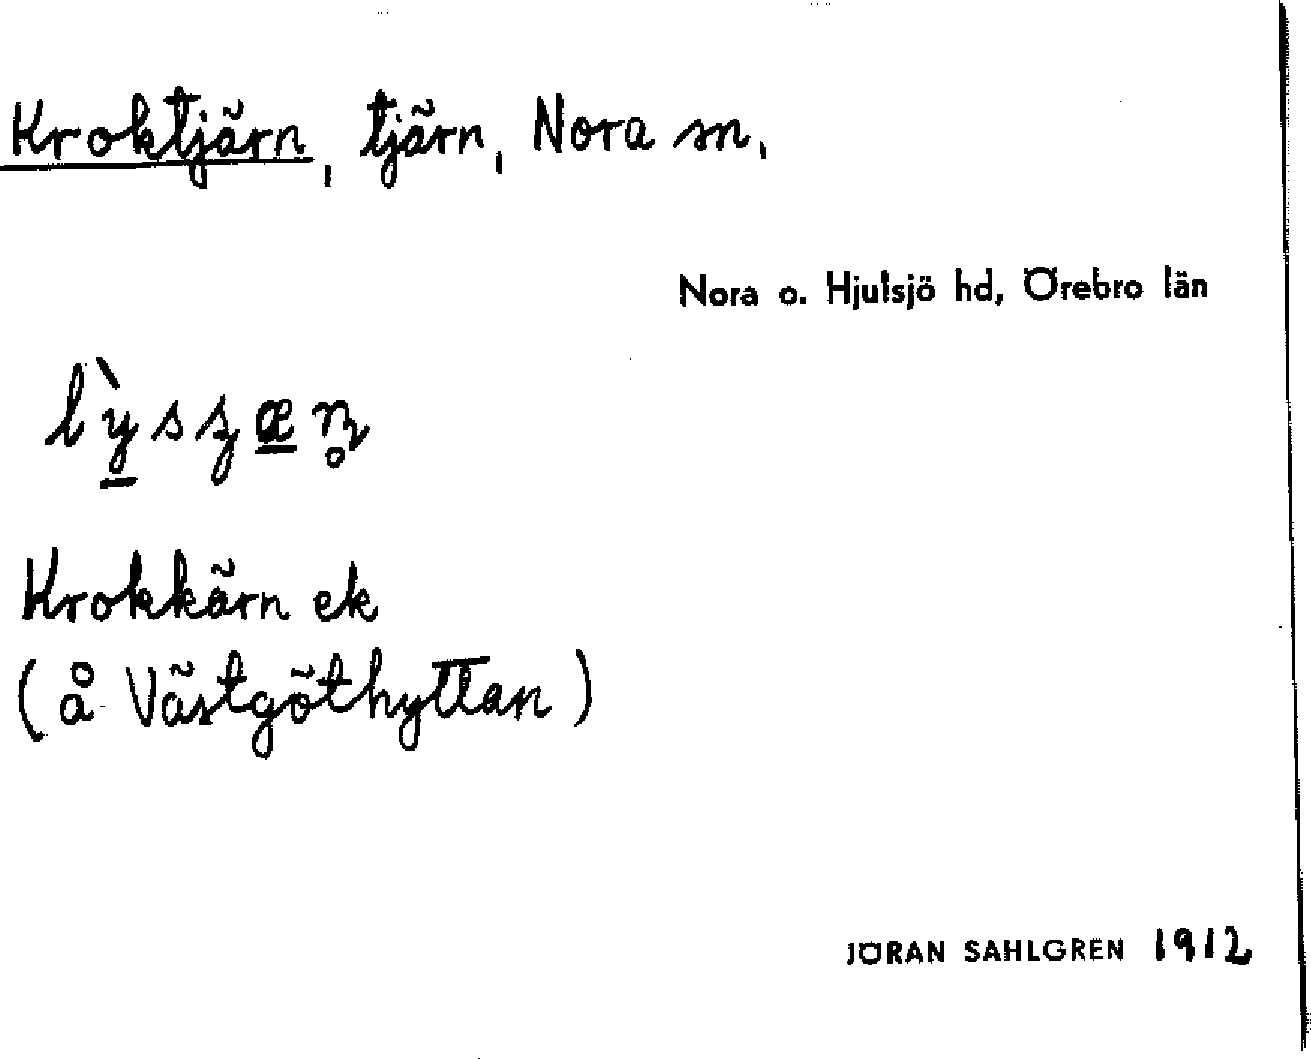 Kroktjärn, tjärn, Nora sn,
Nora o. Hjulsjö hd, Örebro län
Krokkärn ek
(å Västgöthyttan)
JÖRAN SAHLGREN 1912